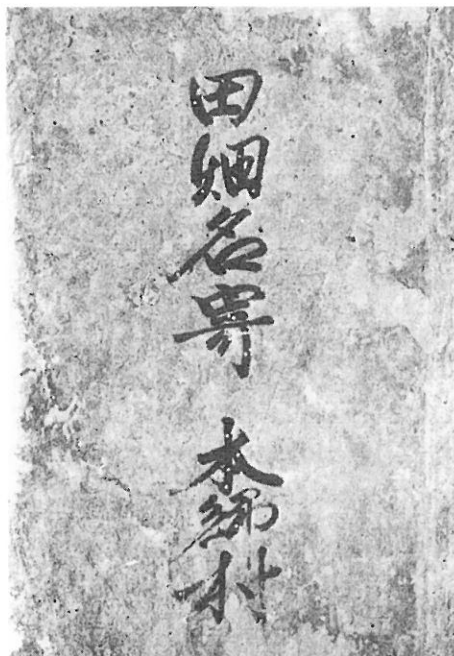 田畑名寄 本郷村